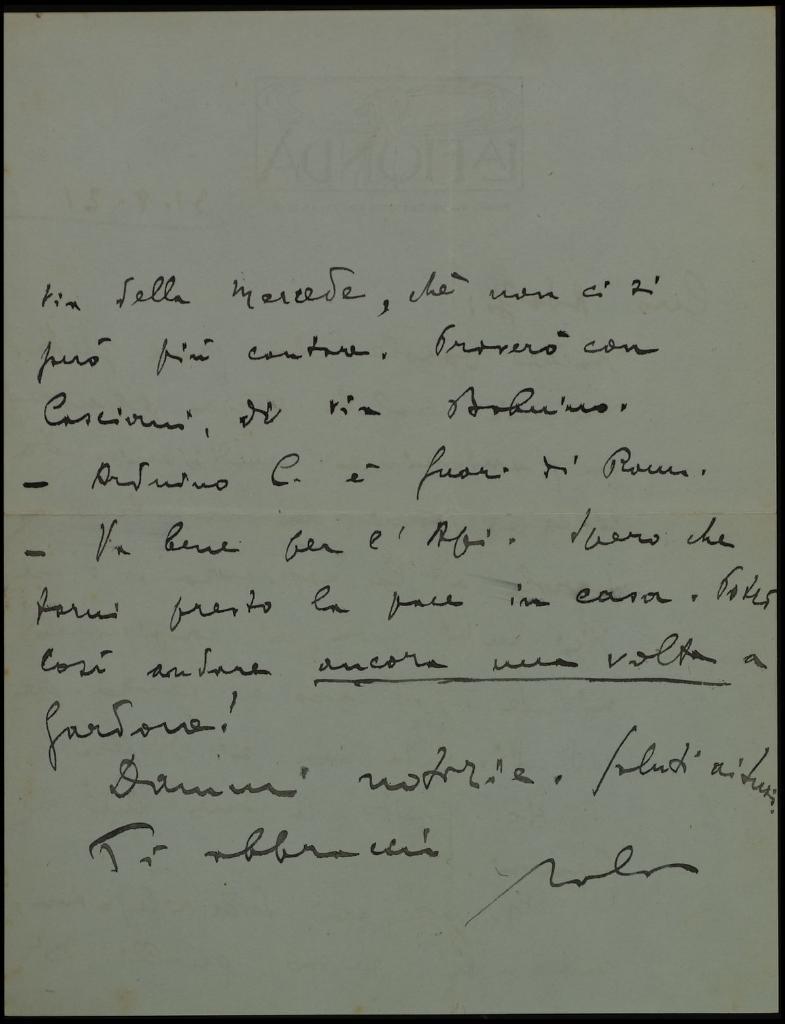 LA FIONDA
via della Mercede, chè non ci si
può più contare. Troverò con
di via Babuino.
- Arduino C. è fuori di Roma.
- Va bene per l'Api. Spero che
torni presto la pace in casa. Potrò
così andare ancora una volta a
Gardone!
Dammi notizie. Saluti ai tuoi.
Ti abbraccio